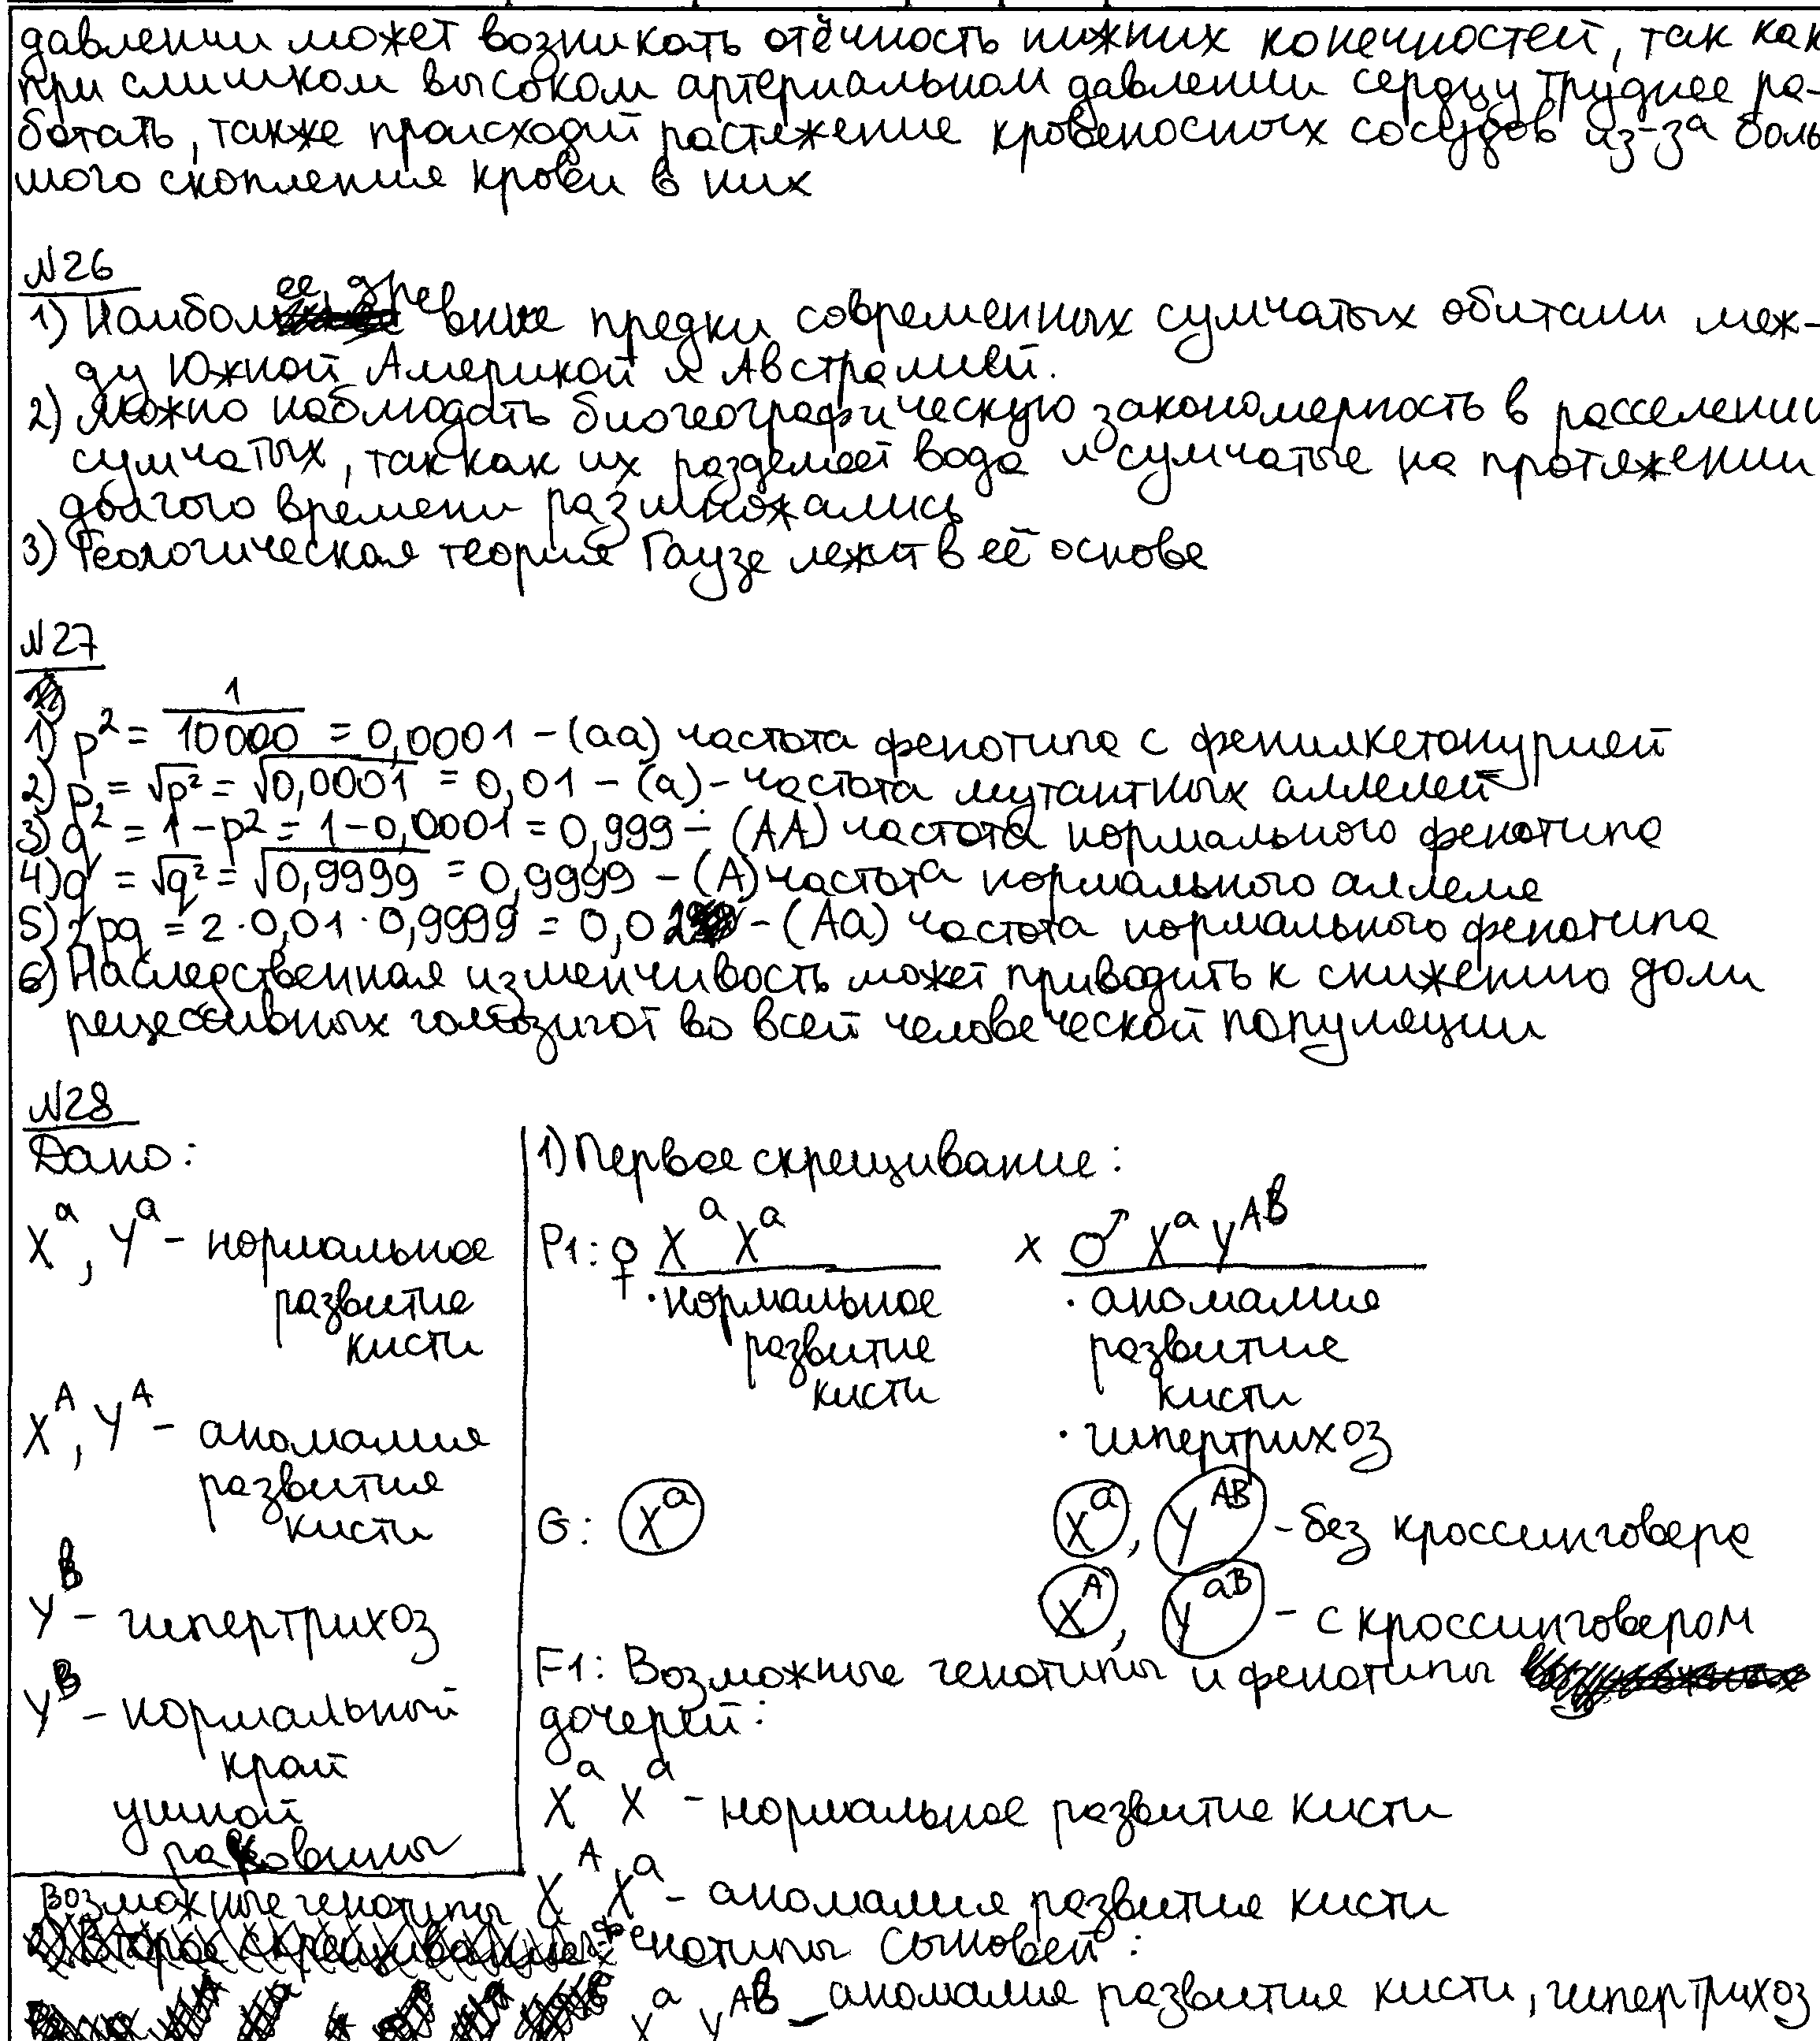 давлении может возникать отёчность нижних конечностей, так как
при слишком высоком артериальном давлении сердцу труднее ра-
ботать, также происходит растяжение кровеносных сосудов из-за боль
шого скопления крови в них
N26
1) Наиболее древние предки современных сумчатых обитали меж-
ду Южной Америкой и Австралией.
2) Можно наблюдать биогеографическую закономерность в расселении
сумчатых, так как их разделяет вода и сумчатые на протяжении
долгого времени размножались
3) Геологическая теория Гаузе лежит в её основе
N27
1) p² = 1/10000 = 0,0001 - (аа) частота фенотипа с фенилкетонурией
2) p = √p² = √0,0001 = 0,01 - (а) - частота мутантных аллелей
3) q² = 1 - p² = 1 - 0,0001 = 0,999 - (АА) частота нормального фенотипа
4) q = √q² = √0,9999 = 0,9999 - (А) частота нормального аллеля
5) 2pq = 2 · 0,01 · 0,9999 = 0,02 - (Аа) частота нормального фенотипа
6) Наследственная изменчивость может приводить к снижению доли
рецессивных гомозигот во всей человеческой популяции
N28
Дано:
X^a, Y^a - нормальное
развитие
кисти
X^A, Y^A - аномалия
развития
кисти
Y^B - гипертрихоз
Y^B - нормальный
край
ушной
раковины
1) Первое скрещивание:
P1: ♀ X^a X^a x ♂ X^a Y^AB
· нормальное · аномалия
развитие развитие
кисти кисти
· гипертрихоз
G: X^a X^a, Y^AB - без кроссинговера
X^A, Y^aB - с кроссинговером
F1: Возможные генотипы и фенотипы
дочерей:
X^a X^a - нормальное развитие кисти
X^A X^a - аномалия развития кисти
Возможные генотипы фенотипы сыновей:
X^a Y^AB - аномалия развития кисти, гипертрихоз